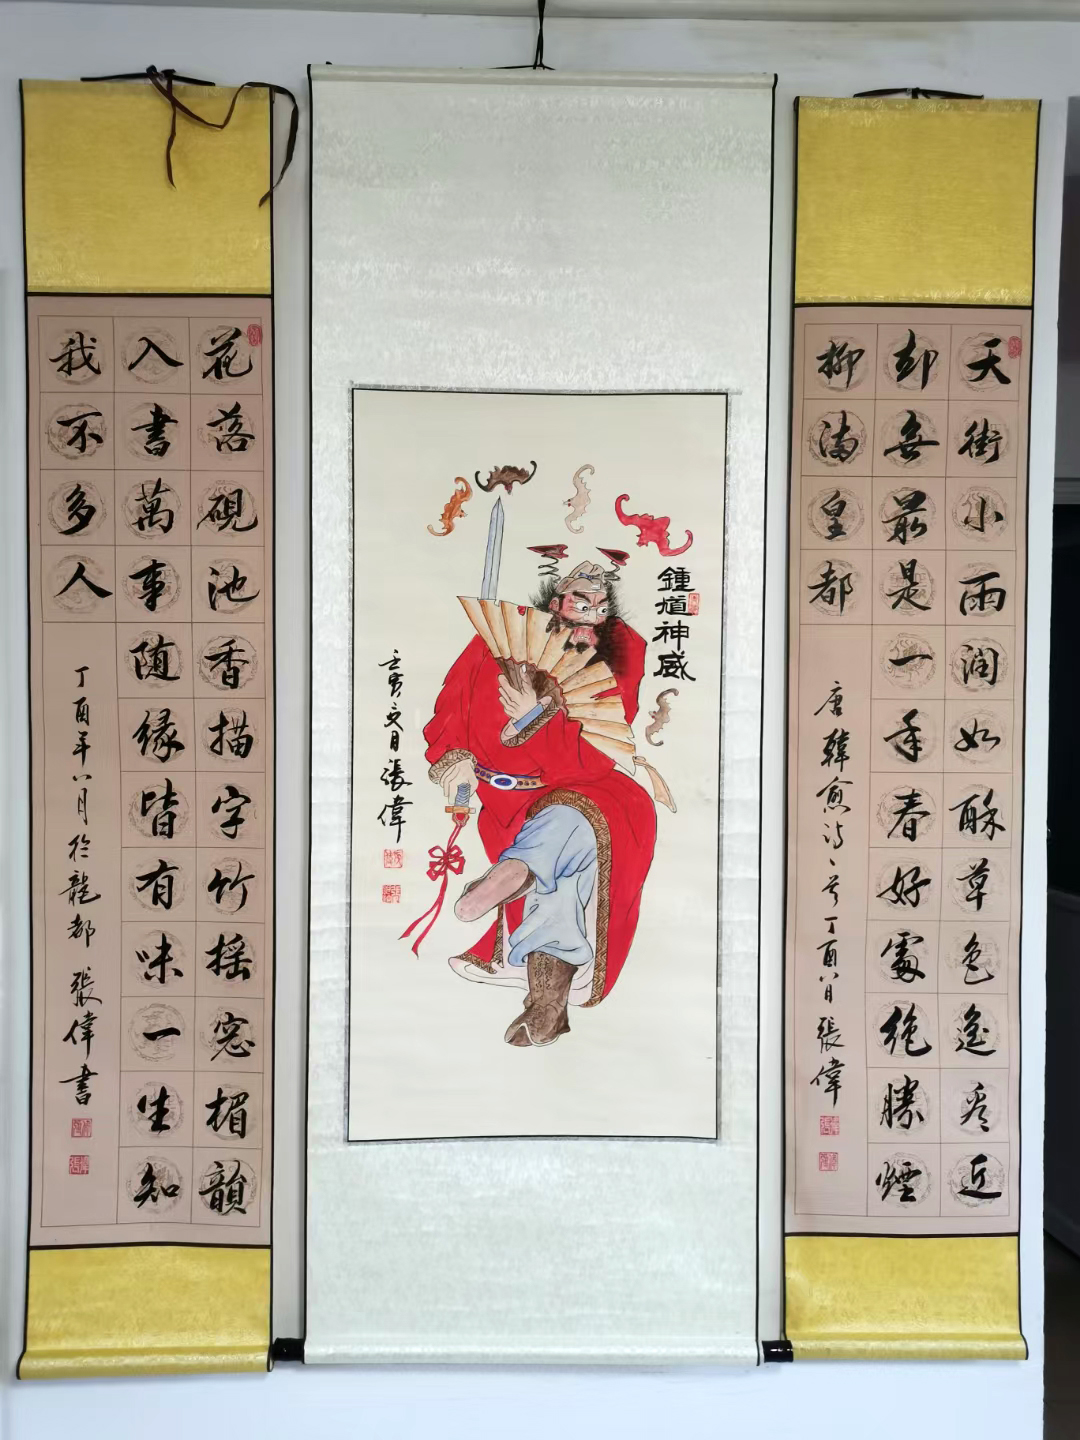 天街小雨润如酥草色遥看近
却無最是一年春好處絶勝煙
柳满皇都
唐韓愈诗一首丁酉八月張偉
鍾馗神威
壬寅文月張偉
花落硯池香描字竹摇窓楣韻
入書萬事随緣皆有味一生知
我不多人
丁酉年八月於龍都張偉書